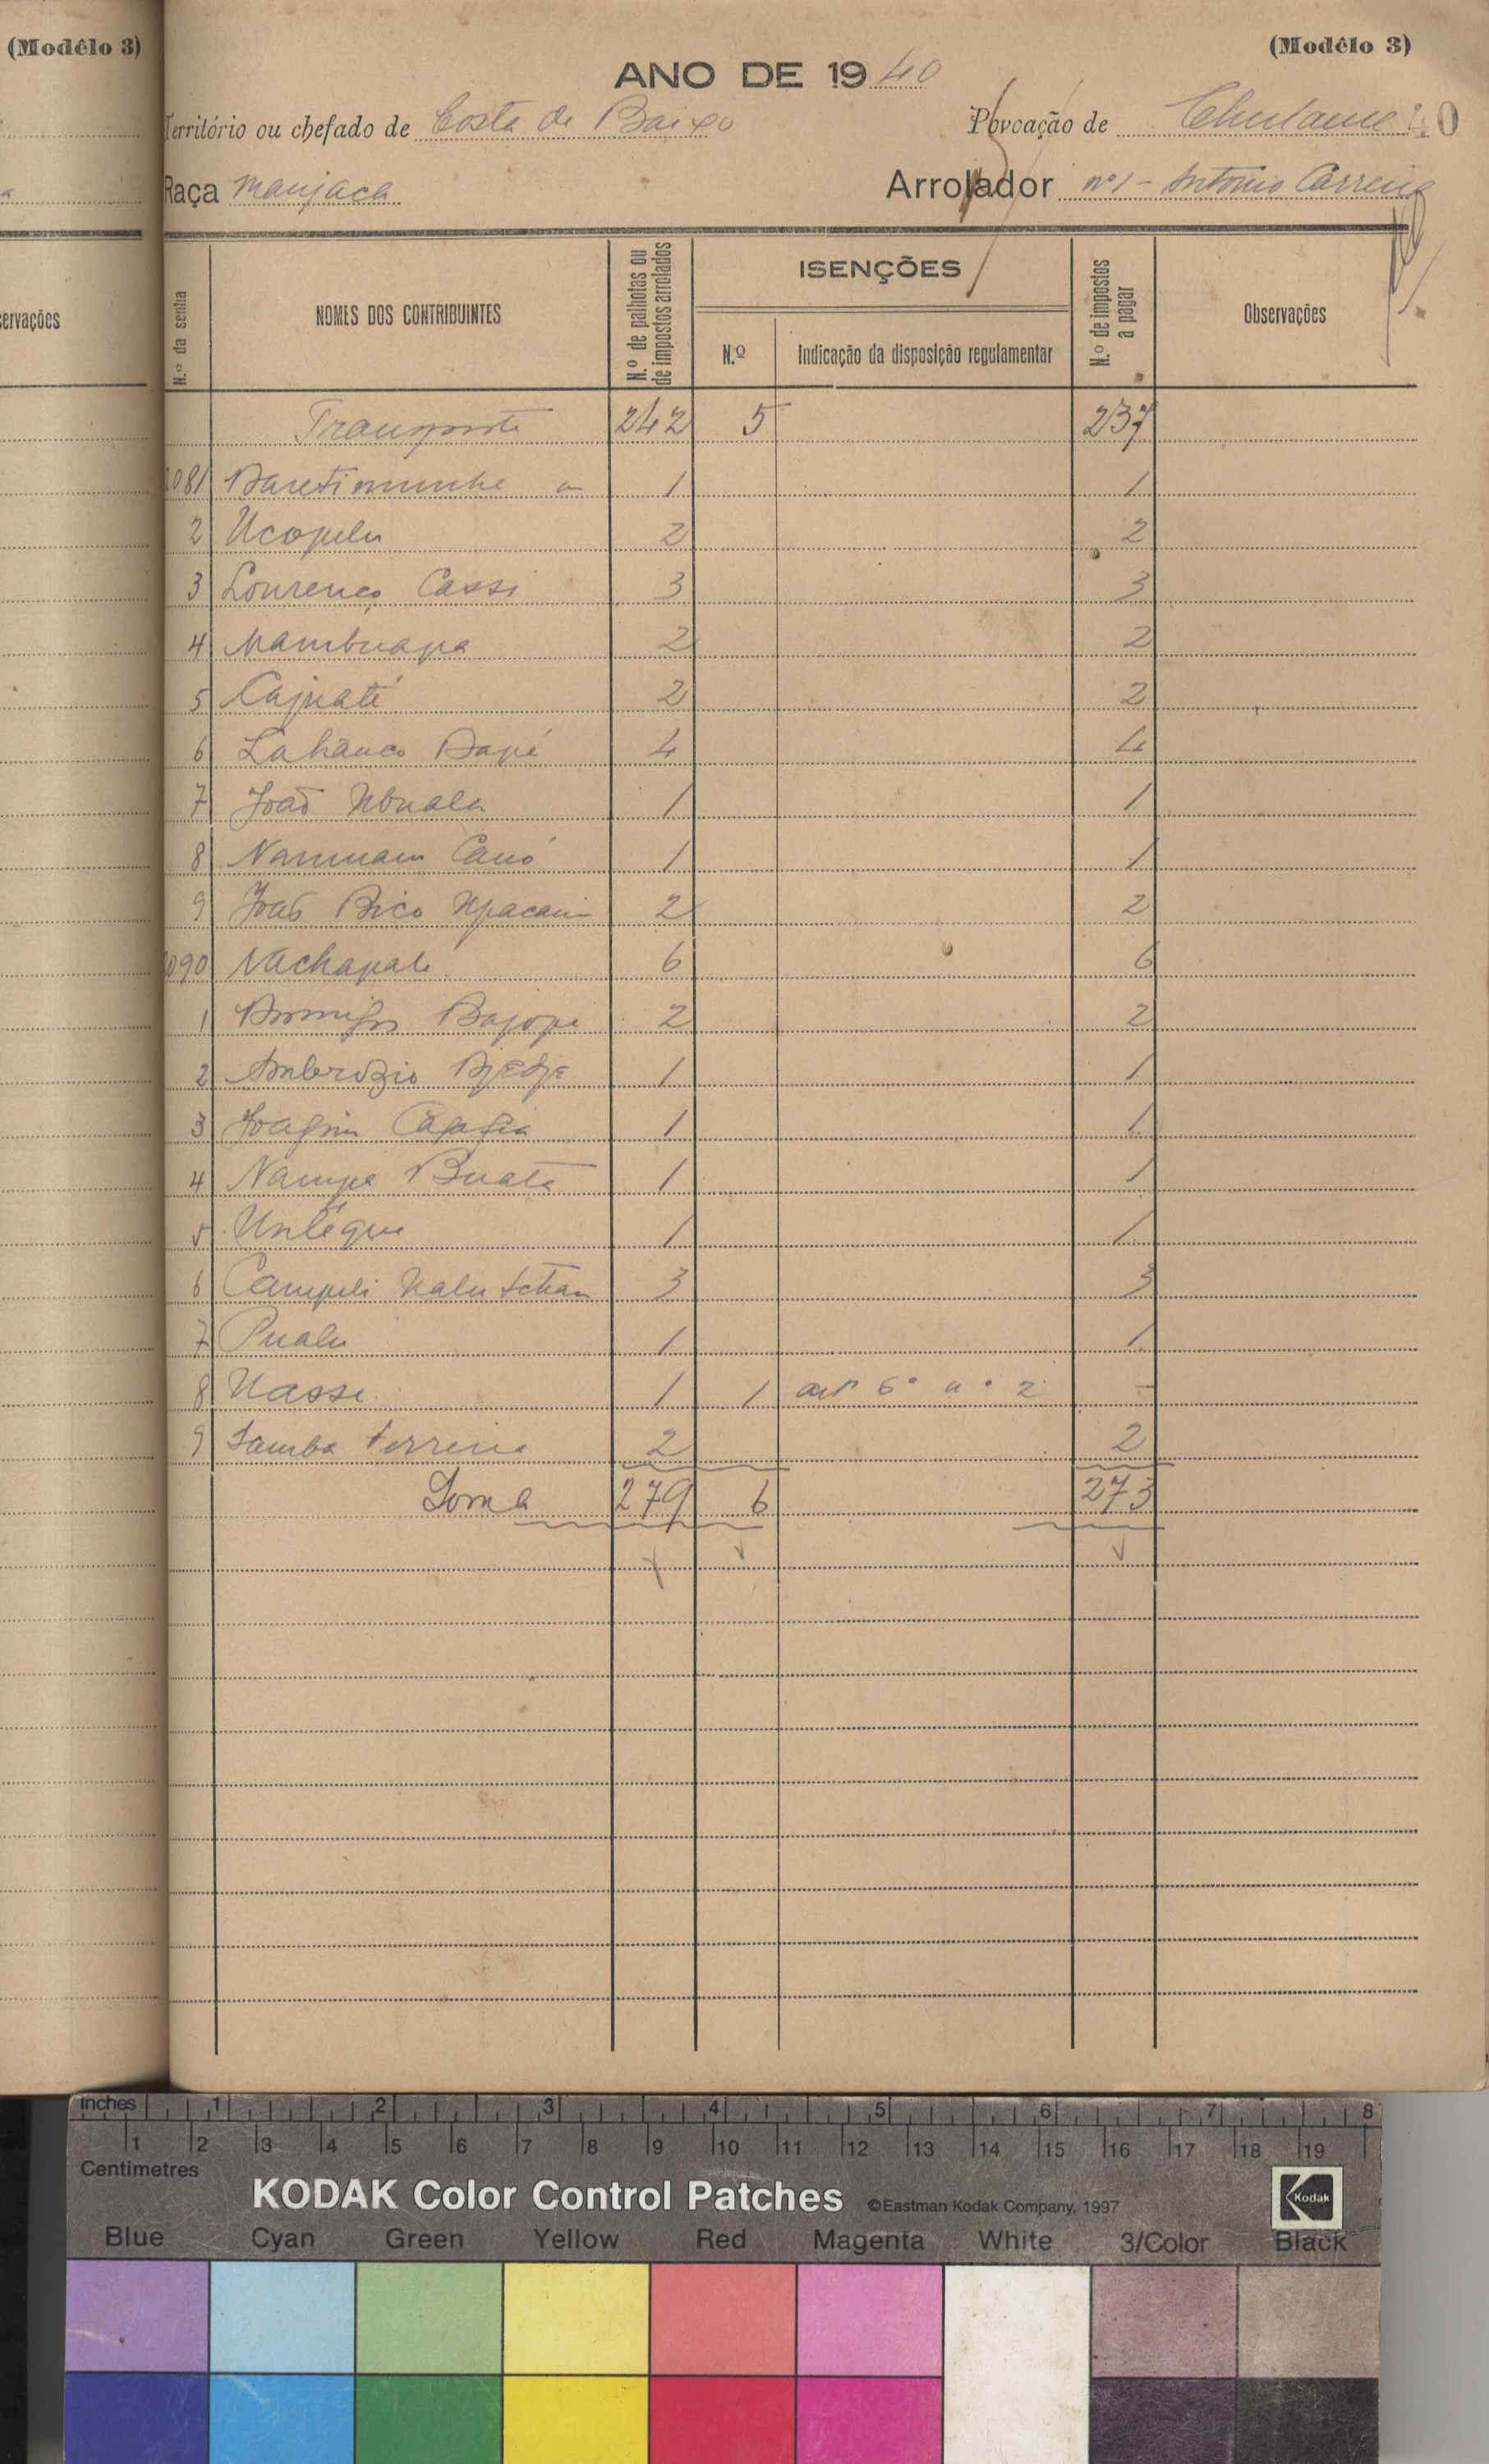 (Modêlo 3)
(Modêlo 3)
ANO DE 1940
Território ou chefado de Costa de Baixo
Povoação de
40
Raça manjaca
Arrolador nº 1 - António Carreira
ervações
N.º da senha
NOMES DOS CONTRIBUINTES
N.º de palhotas ou de impostos arrolados
ISENÇÕES
N.º
Indicação da disposição regulamentar
N.º de impostos a pagar
Observações
Transporte 242 5 237
1 1
2 Ucopelu 2 2
3 Lourenço Cassi 3 3
4 Mambuapa 2 2
5 Cajuaté 2 2
6 4 4
7 João 1 1
8 1 1
9 João Bico 2 2
090 Nachapale 6 6
1 Domingos 2 2
2 Ambrozio 1 1
3 Joaquim 1 1
4 Nampa Buata 1 1
5 Unléque 1 1
6 Campeli 3 3
7 Pualu 1 1
8 Uasse 1 1 artº 6º nº 2 -
9 Samba Ferreira 2 2
Soma 279 6 273
inches 1 2 3 4 5 6 7 8
1 2 3 4 5 6 7 8 9 10 11 12 13 14 15 16 17 18 19
Centimetres
KODAK Color Control Patches ©Eastman Kodak Company, 1997 Kodak
Blue Cyan Green Yellow Red Magenta White 3/Color Black